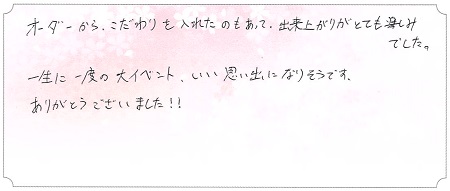 オーダーから、こだわりを入れたのもあって、出来上がりがとても楽しみ
でした。
一生に一度の大イベント、いい思い出になりそうです。
ありがとうございました!!